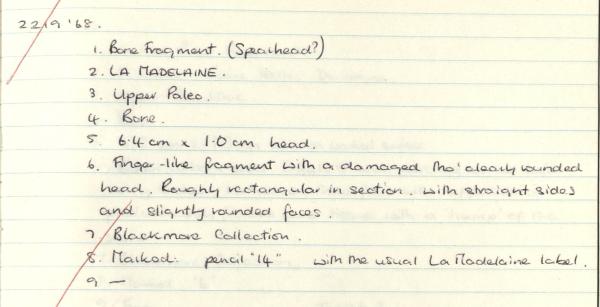 22/9 '68.
1. Bone Fragment. (Spearhead?)
2. LA MADELAINE.
3. Upper Paleo.
4. Bone.
5. 6.4 cm x 1.0 cm head.
6. Finger-like fragment with a damaged tho' clearly rounded
head. Roughly rectangular in section. with straight sides
and slightly rounded faces.
7. Blackmore Collection.
8. Marked: pencil "14" with the usual La Madelaine label.
9 —